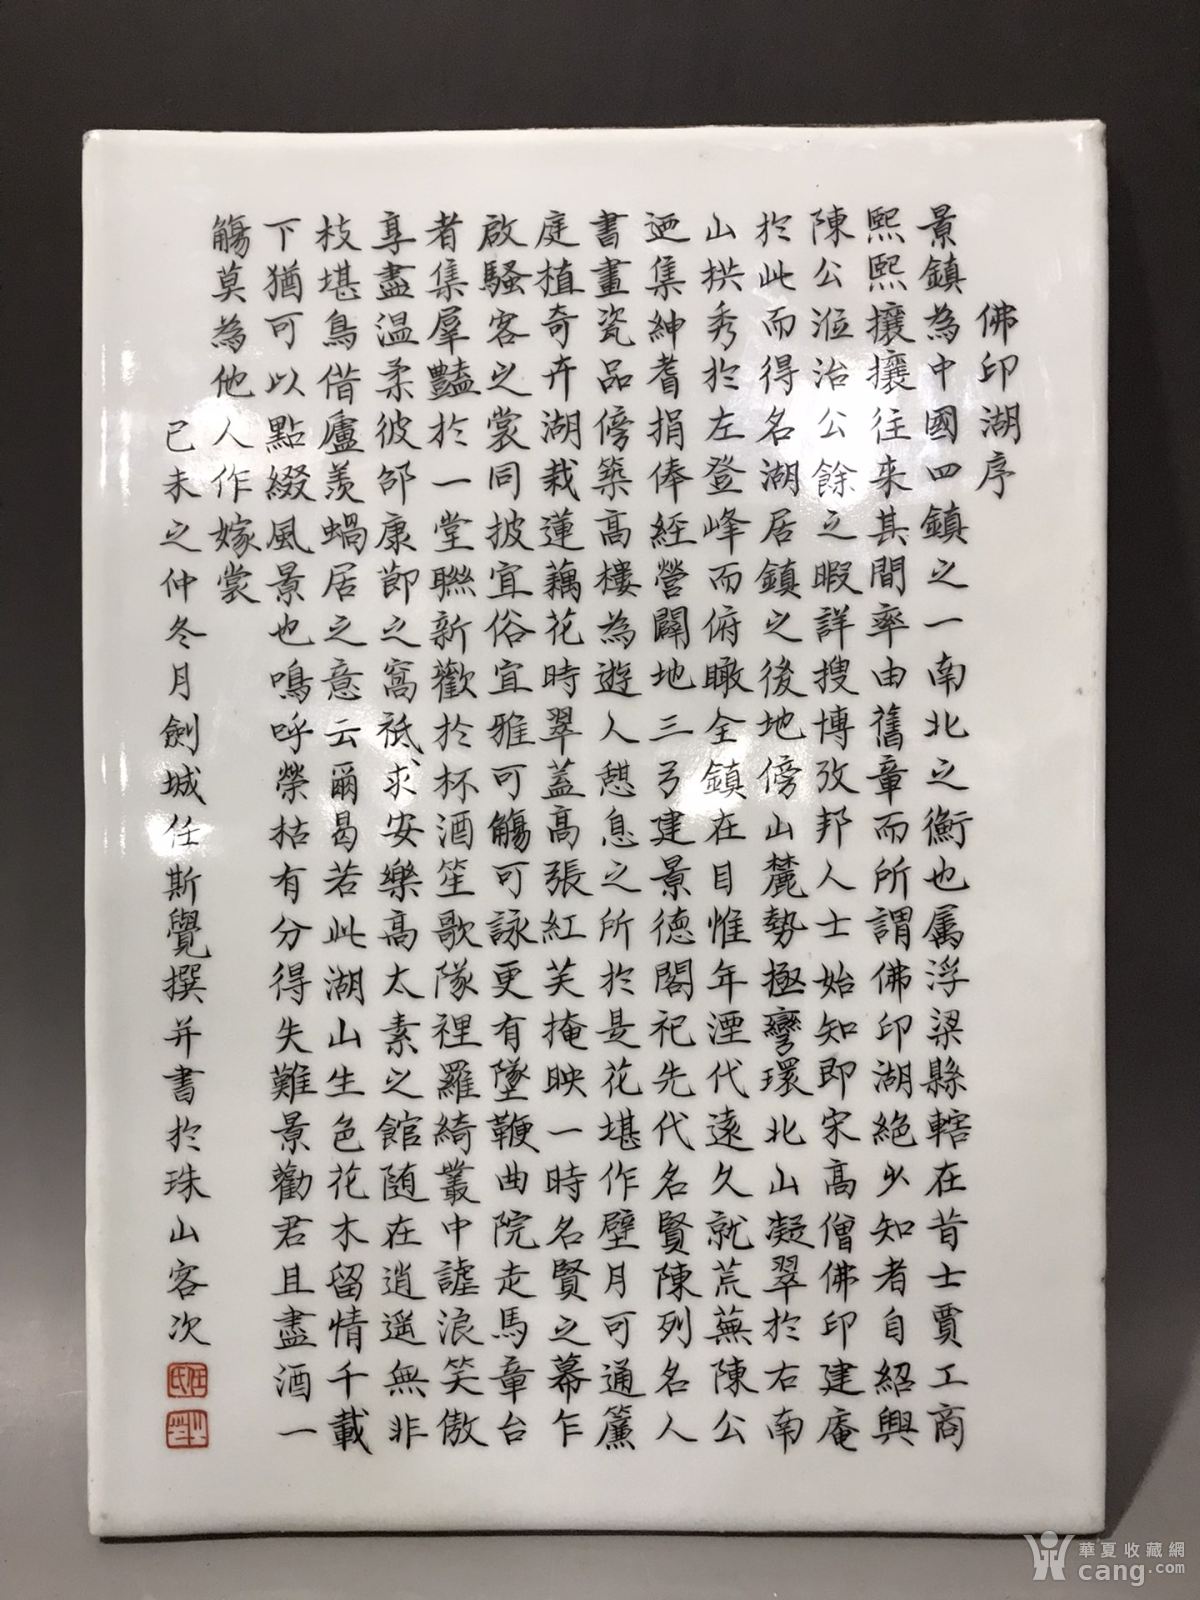 佛印湖序
景鎮為中國四鎮之一南北之衡也属浮梁縣轄在昔士賈工商
熙熙攘攘往来其間率由舊章而所謂佛印湖絕少知者自紹興
陳公涖治公餘之暇詳搜博攷邦人士始知即宋高僧佛印建庵
於此而得名湖居鎮之後地傍山麓勢極彎環北山凝翠於右南
山拱秀於左登峰而俯瞰全鎮在目惟年湮代遠久就荒蕪陳公
迺集紳耆捐俸經營闢地三弓建景德閣祀先代名賢陳列名人
書畫瓷品傍築高樓為遊人憩息之所於是花堪作壁月可通簾
庭植奇卉湖栽蓮藕花時翠蓋高張紅芙掩映一時名賢之幕乍
啟騷客之裳同披宜俗宜雅可觴可詠更有墜鞭曲院走馬章台
者集羣豔於一堂聯新歡於杯酒笙歌隊裡羅綺叢中謔浪笑傲
享盡温柔彼邵康節之窩祇求安樂高太素之館随在逍遥無非
枝堪鳥借廬羨蝸居之意云爾曷若此湖山生色花木留情千載
下猶可以點綴風景也鳴呼榮枯有分得失難景勸君且盡酒一
觴莫為他人作嫁裳
己未之仲冬月劍城任斯覺撰并書於珠山客次
任氏
華夏收藏網
cang.com